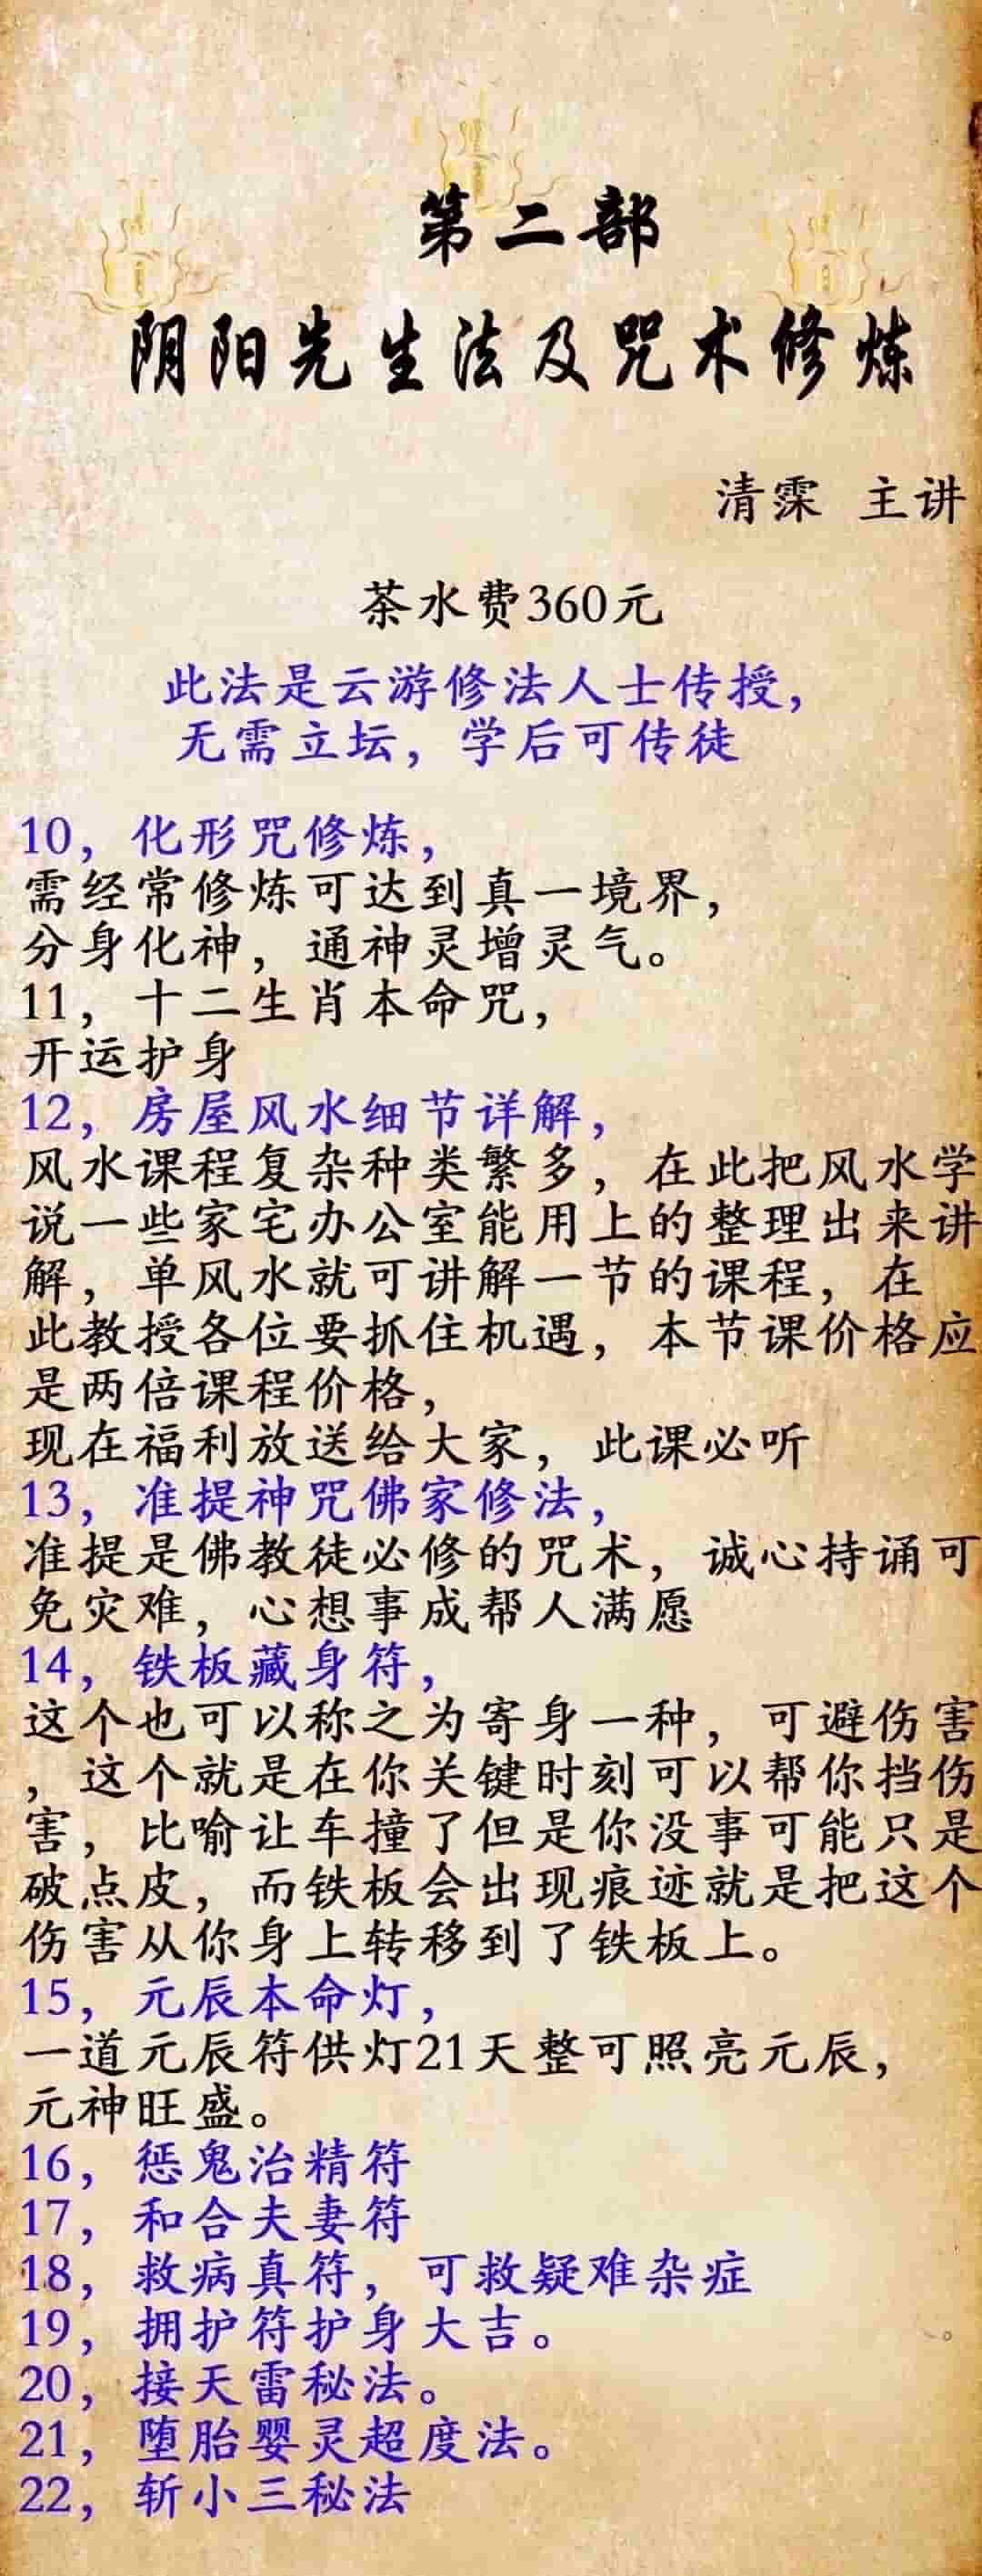 第二部
阴阳先生法及咒术修炼
清霂 主讲
茶水费360元
此法是云游修法人士传授，
无需立坛，学后可传徒
10，化形咒修炼，
需经常修炼可达到真一境界，
分身化神，通神灵增灵气。
11，十二生肖本命咒，
开运护身
12，房屋风水细节详解，
风水课程复杂种类繁多，在此把风水学
说一些家宅办公室能用上的整理出来讲
解，单风水就可讲解一节的课程，在
此教授各位要抓住机遇，本节课价格应
是两倍课程价格，
现在福利放送给大家，此课必听
13，准提神咒佛家修法，
准提是佛教徒必修的咒术，诚心持诵可
免灾难，心想事成帮人满愿
14，铁板藏身符，
这个也可以称之为寄身一种，可避伤害
，这个就是在你关键时刻可以帮你挡伤
害，比喻让车撞了但是你没事可能只是
破点皮，而铁板会出现痕迹就是把这个
伤害从你身上转移到了铁板上。
15，元辰本命灯，
一道元辰符供灯21天整可照亮元辰，
元神旺盛。
16，惩鬼治精符
17，和合夫妻符
18，救病真符，可救疑难杂症
19，拥护符护身大吉。
20，接天雷秘法。
21，堕胎婴灵超度法。
22，斩小三秘法